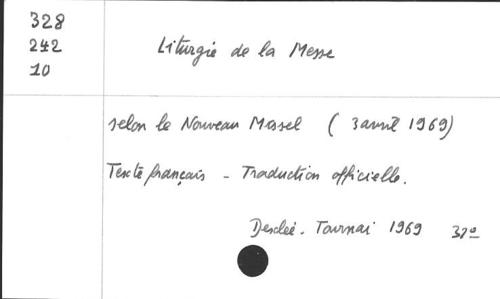 328
242
10
Liturgie de la Messe
selon le Nouveau Missel ( 3 avril 1969)
Texte français - Traduction officielle.
Desclée. Tournai 1969 32º